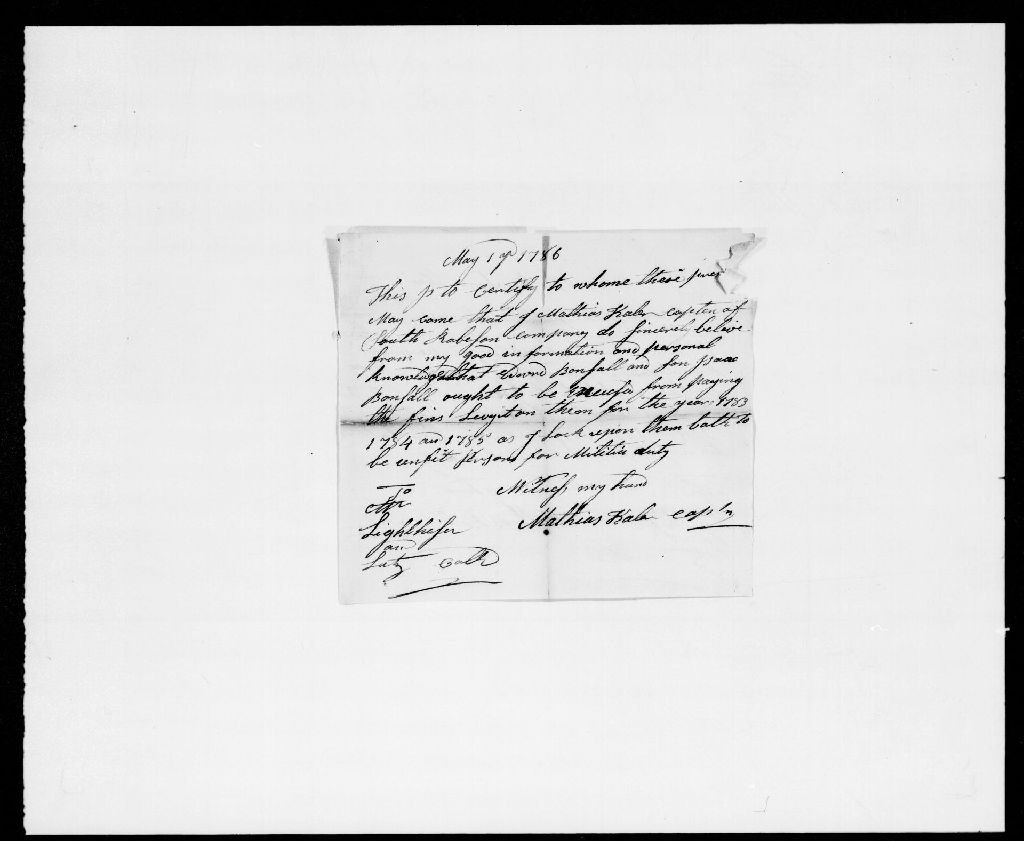 May 1 1786
This is to Certify to whome these
May come that I Mathias Kaler capten of
South Robeson company do sincerely beleive
from my good information and personal
knowledge that Edward Bonsall and son Isaac
Bonsall ought to be from paying
the fins Levyit on them for the year 1783
1784 and 1785 as I Lock upon them both to
be unfit persons for Militia duty
Witness my hand
Mathias Kaler capt'n
To
Mr
Lighthifer
and
Lutz